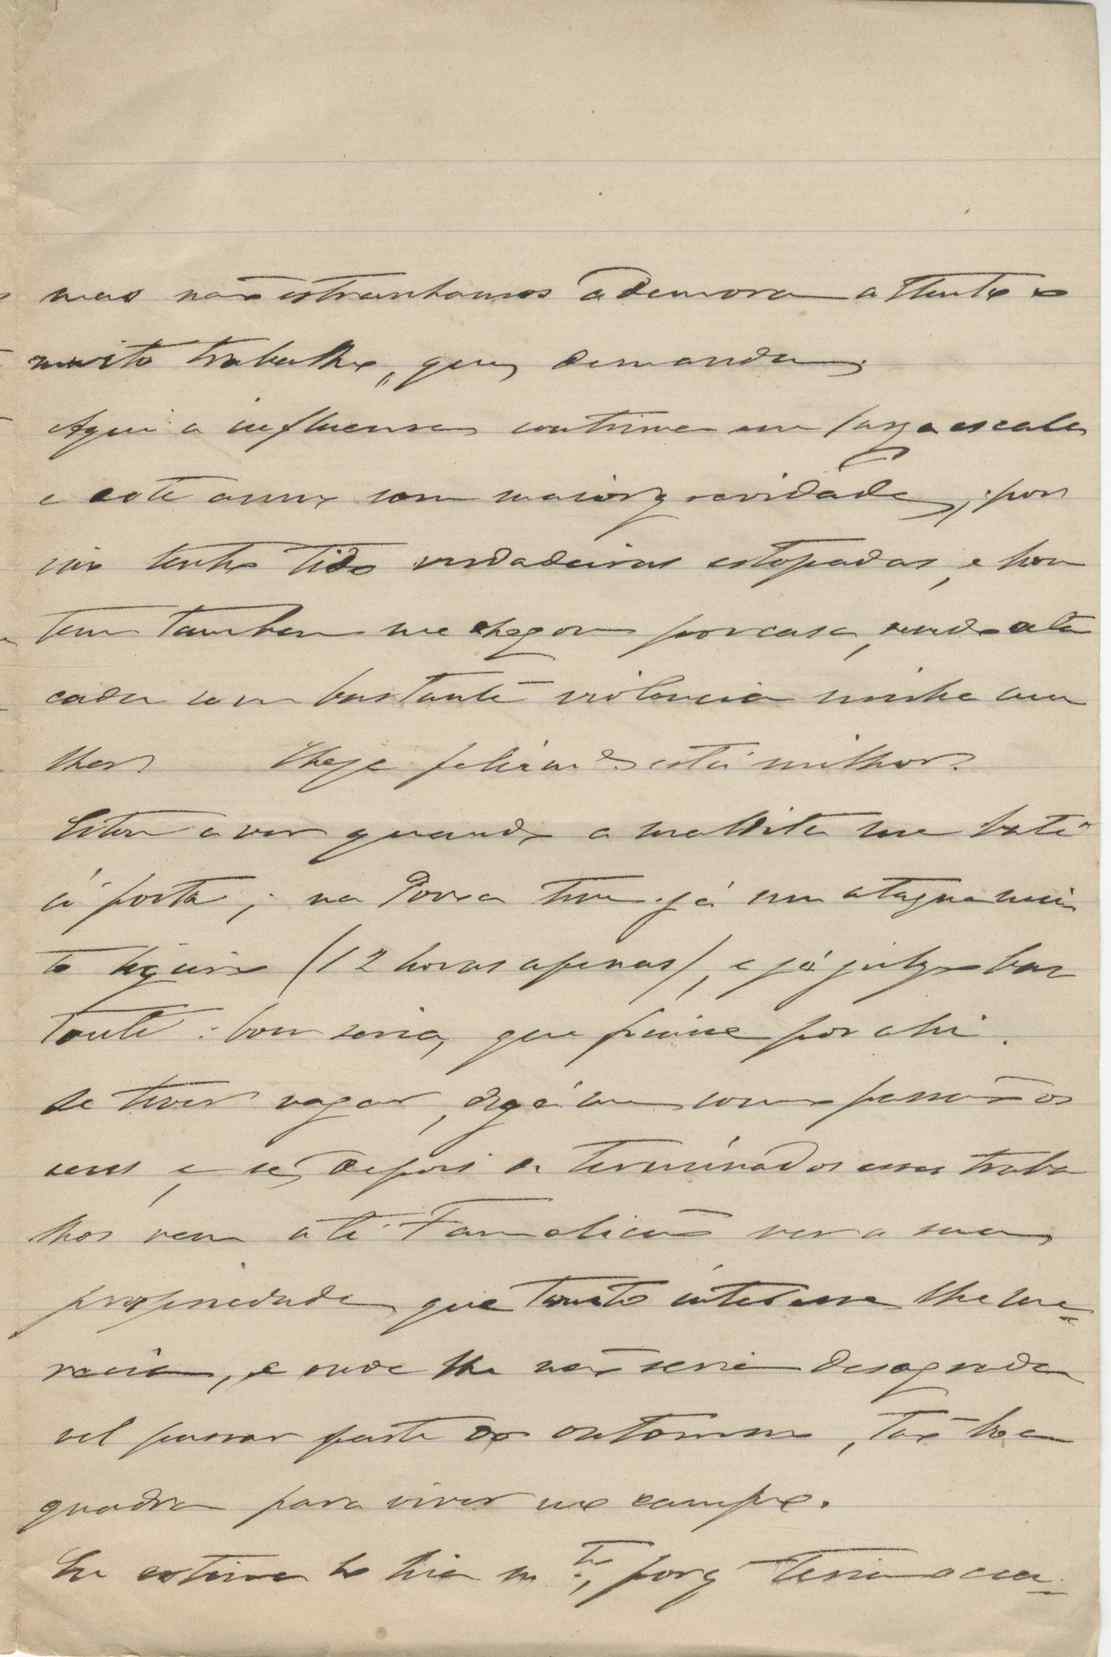 mas não estranhamos a demora attento o
muito trabalho, que demanda.
Aqui a influensa continua em larga escala
e este anno com maior gravidade, por
isso tenho tido verdadeiras estopadas, e hon
tem tambem me chegou por casa, sendo ata
cada com bastante violencia minha mu
lher. Hoje felizmente está milhor.
Estou a ver quando a maldita me bate
á porta; na Povoa tive já um ataque mui
to ligeiro (12 horas apenas), e já julgo bas
tante: bom seria, que ficasse por ahi.
Se tiver vagar, diga-me como passão os
seus, e se, depois de terminados esses traba
lhos vem até Famalicão ver a sua
propriedade que tanto interesse lhe me-
recia, e onde lhe não seria desagrada
vel passar parte do outomno, tão boa
quadra para viver no campo.
Eu estima-lo hia m.to, porq teria occa-